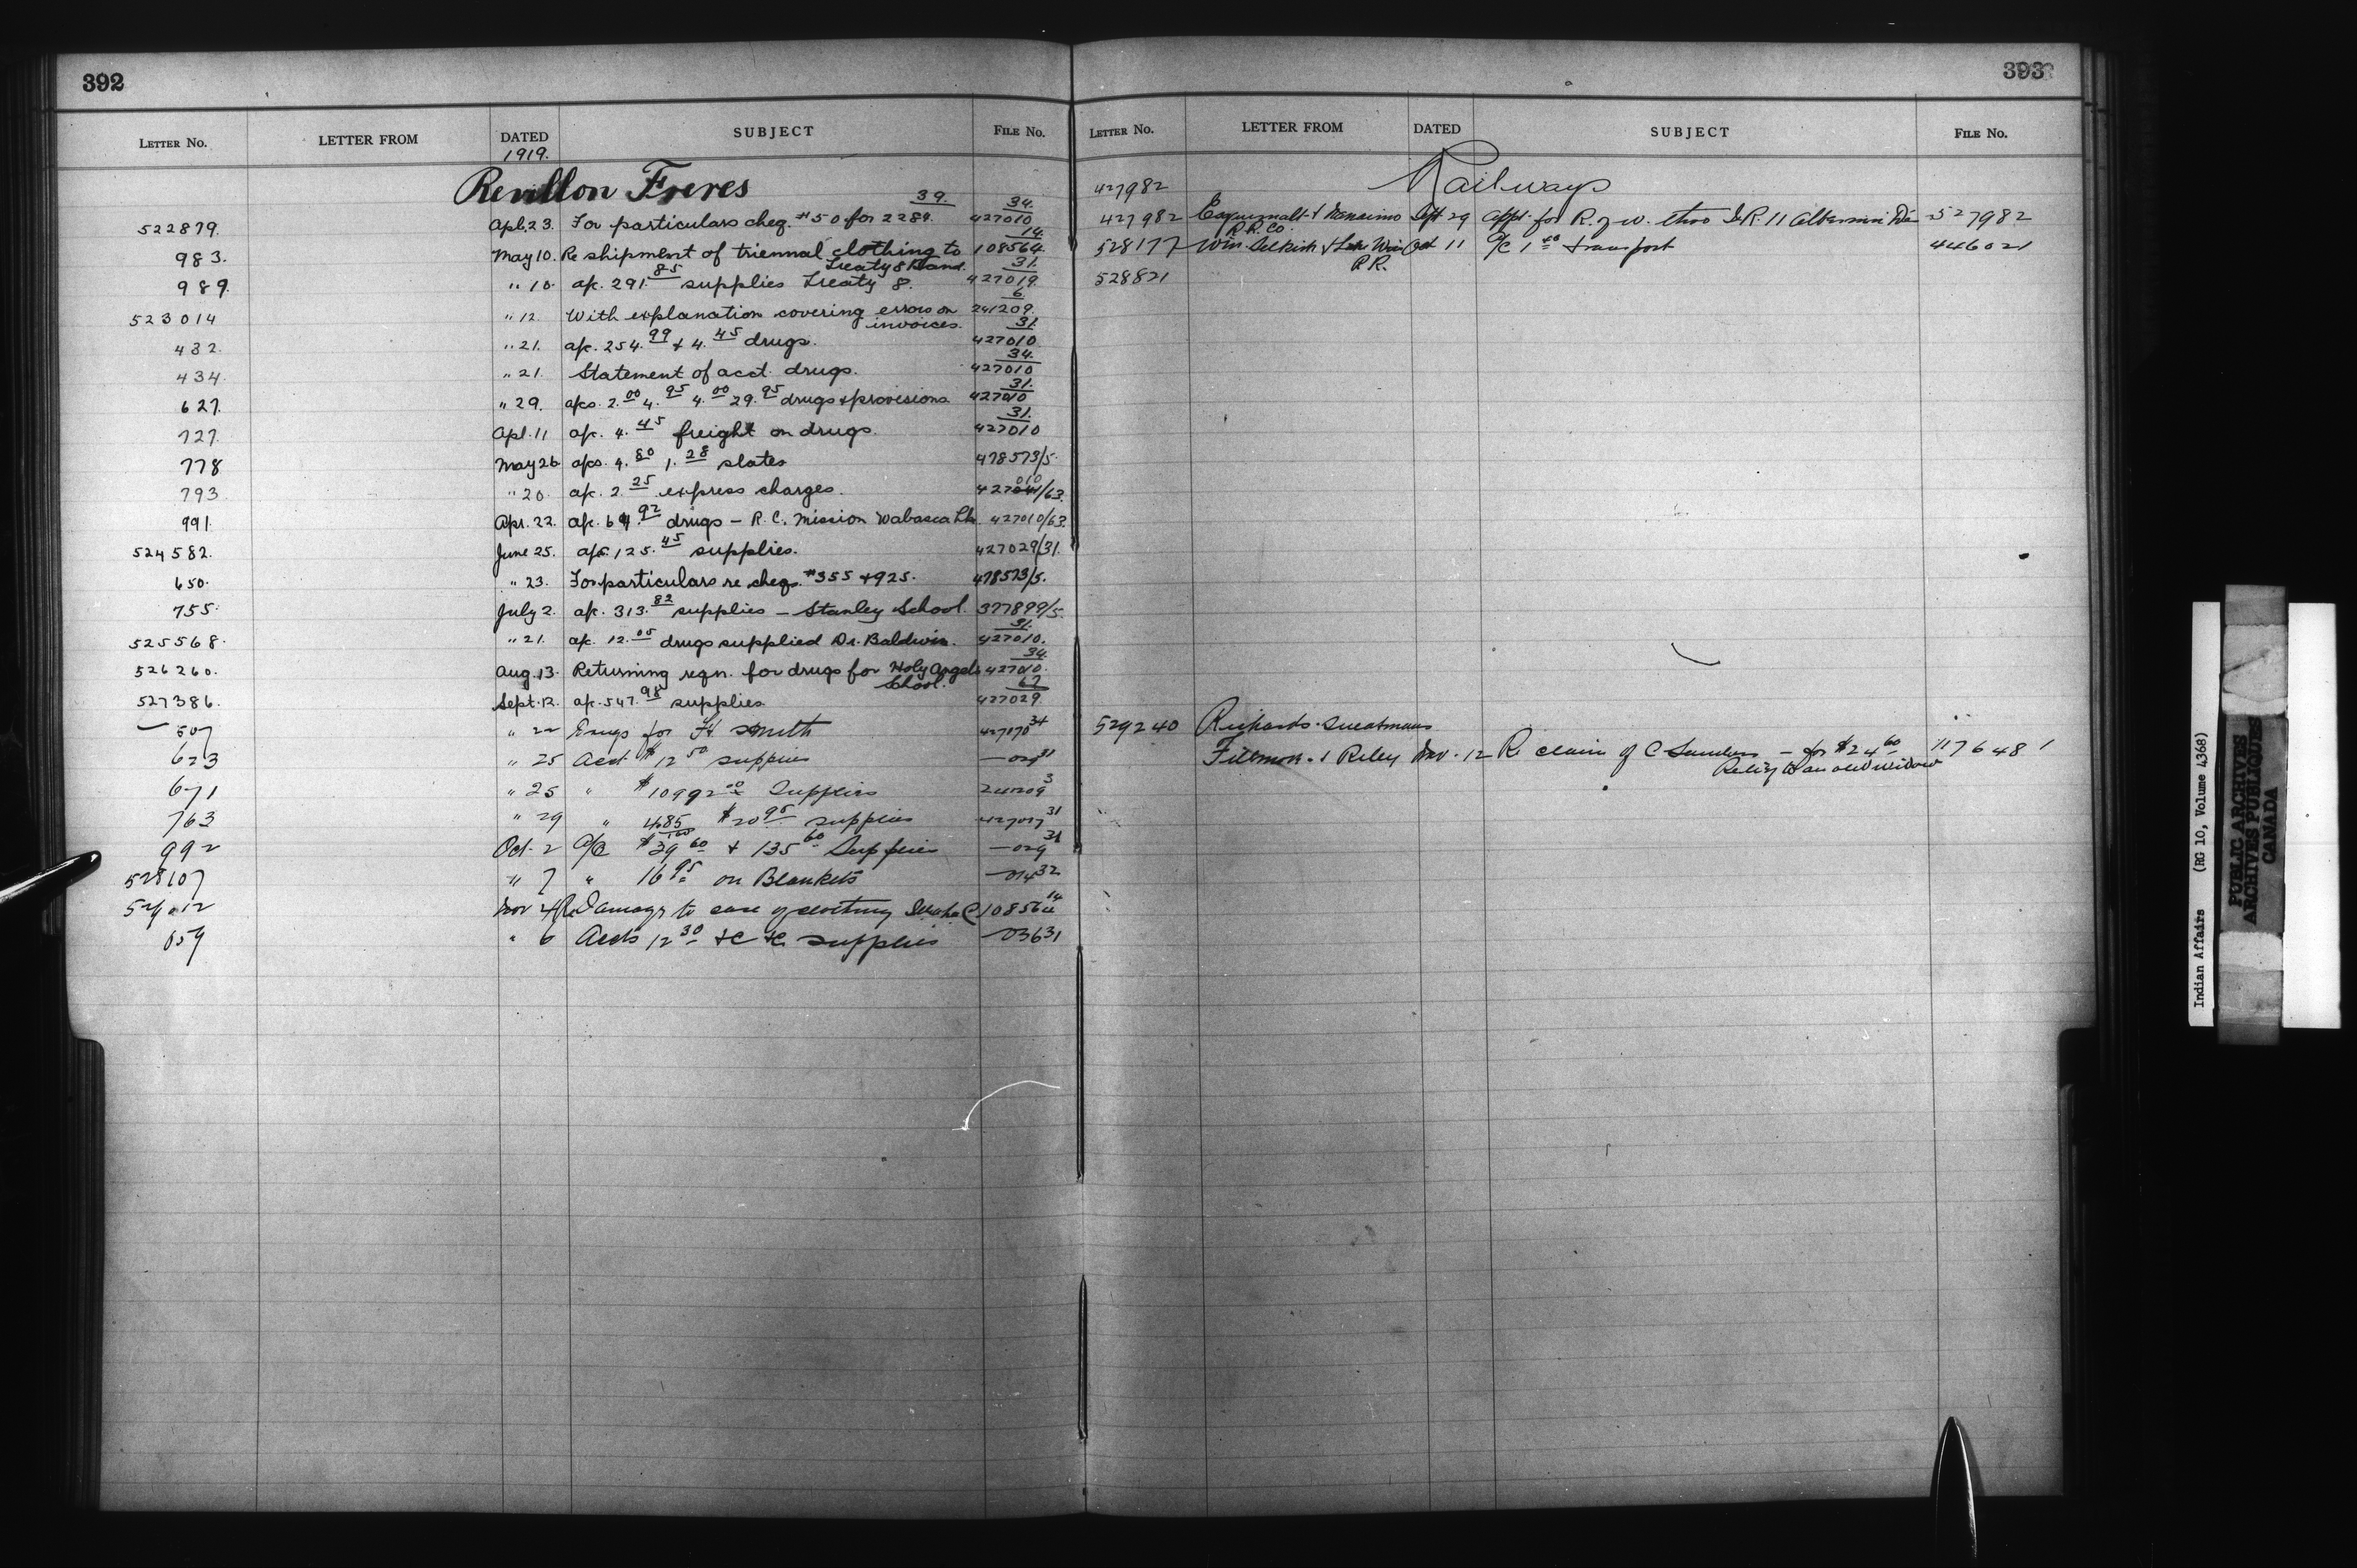 392
LETTER No. LETTER FROM DATED SUBJECT FILE No.
1919.
Revillon Freres
39. 34.
522879. Apl. 23. For particulars cheq. #50 for 2289. 427010
14.
983. May 10. Re shipment of triennal clothing to 108564.
Treaty 8 Band. 31.
989. " 10. a/c. 291.85 supplies Treaty 8. 427019.
6
523014 " 12. With explanation covering errors on 241209.
invoices. 31.
432. " 21. a/c. 254.99 + 4.45 drugs. 427010
34.
434. " 21. Statement of acct. drugs. 427010
31.
627. " 29. a/cs. 2.00 4.95 4.00 29.95 drugs & provisions. 427010
31.
727. Apl. 11 a/c. 4.45 freight on drugs. 427010
778 May 26 a/cs. 4.80 1.28 slates 478573/5.
793. " 20. a/c. 2.25 express charges. 427010/63.
991. Apr. 22. a/c. 64.92 drugs - R.C. Mission Wabasca Lk. 427010/63.
524582. June 25. a/c. 125.45 supplies. 427029/31.
650. " 23. For particulars re cheqs. #355 + 925. 478573/5.
755. July 2. a/c. 313.82 supplies - Stanley School. 377899/5.
31.
525568. " 21. a/c. 12.05 drugs supplied Dr. Baldwin. 427010.
34.
526260. Aug. 13. Returning reqn. for drugs for Holy Angels 427010.
School. 67
527386. Sept. 12. a/c. 547.98 supplies. 427029
507 " 22 Drugs for Ft Smith 34
623 " 25 Acct $12 50 supplies — 029 31
671 " 25 " $10992 00 Supplies 3
763 " 29 " 485 $20 95 supplies 31
992 Oct. 2 a/c $39 60 + 135 60 Supplies — 029 31
528107 " 7 " 16 95 on Blankets — 014 32
Nov 4 Re Damage to case of clothing 108564 14
059 " 6 Accts 12 30 &c &c supplies — 03631
393
LETTER No. LETTER FROM DATED SUBJECT FILE No.
Railways
427982
427982 Esquimalt & Nanaimo Sept 29 appl. for R. of W. thro I.R. 11 Alberni Dis 527982
R.R. Co.
528177 Win Selkirk & Lake Win Oct 11 a/c 1 40 transport 446021
R.R.
528821
529240 Richards. Sweatman
Fillmore & Riley Nov. 12 Re claim of C Sanders — for $24 60 117648 1
Relief to an old widow
Indian Affairs (RG 10, Volume 4368)
PUBLIC ARCHIVES
ARCHIVES PUBLIQUES
CANADA